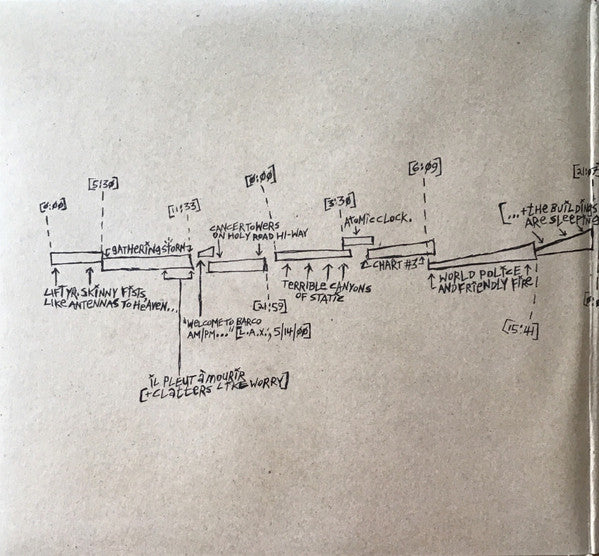 [0:00]
[5:30]
[11:33]
[0:00]
[3:30]
[6:09]
GATHERING STORM
CANCER TOWERS
ON HOLY ROAD HI-WAY
ATOMIC CLOCK.
[...+THE BUILDINGS
ARE SLEEPING
LIFT YR. SKINNY FISTS
LIKE ANTENNAS TO HEAVEN...
"WELCOME TO BARCO
AM/PM..." [L.A.X.; 5/14/00]
[21:59]
TERRIBLE CANYONS
OF STATIC
CHART #3
WORLD POLICE
AND FRIENDLY FIRE
[15:41]
IL PLEUT À MOURIR
[+CLATTERS LIKE WORRY]